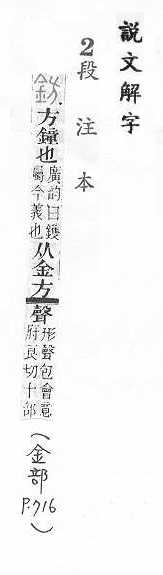 說文解字
2段注本
鈁.方鐘也廣韵曰鑊屬今義也从金方聲形聲包會意府良切十部(金部P.716)